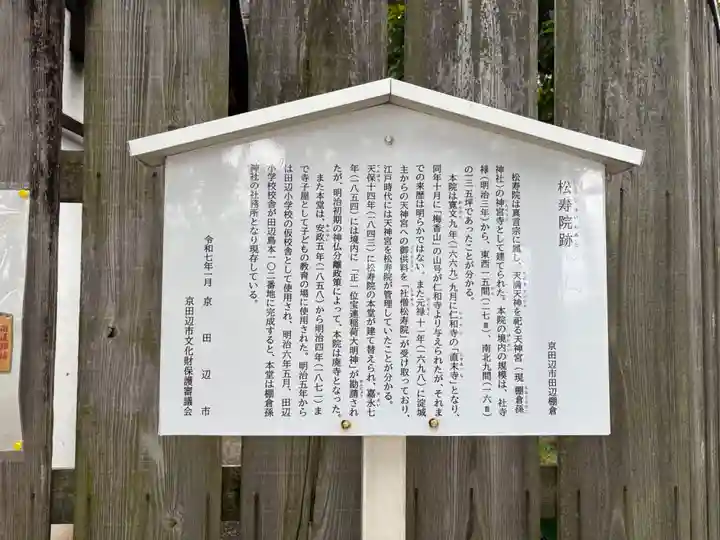 松寿院跡
京田辺市田辺棚倉
松寿院は真言宗に属し、天満天神を祀る天神宮(現 棚倉孫
神社)の神宮寺として建てられた。本院の境内の規模は、社寺
禄(明治三年)から、東西一五間(二七m)、南北九間(一六m)
の一三五坪であったことが分かる。
本院は寛文九年(一六六九)九月に仁和寺の「直末寺」となり、
同年十月に「梅香山」の山号が仁和寺より与えられたが、それま
での来歴は明らかではない。また元禄十一年(一六九八)に淀城
主からの天神宮への御供料を「社僧松寿院」が受け取っており、
江戸時代には天神宮を松寿院が管理していたことが分かる。
天保十四年(一八四三)に松寿院の本堂が建て替えられ、嘉永七
年(一八五四)には境内に「正一位宝連稲荷大明神」が勘請され
たが、明治初期の神仏分離政策によって、本院は廃寺となった。
また本堂は、安政五年(一八五八)から明治四年(一八七一)ま
で寺子屋として子どもの教育の場に使用された。明治五年から
は田辺小学校の仮校舎として使用され、明治六年五月、田辺
小学校校舎が田辺鳥本一〇二番地に完成すると、本堂は棚倉孫
神社の社務所となり現存している。
令和七年一月 京田辺市
京田辺市文化財保護審議会